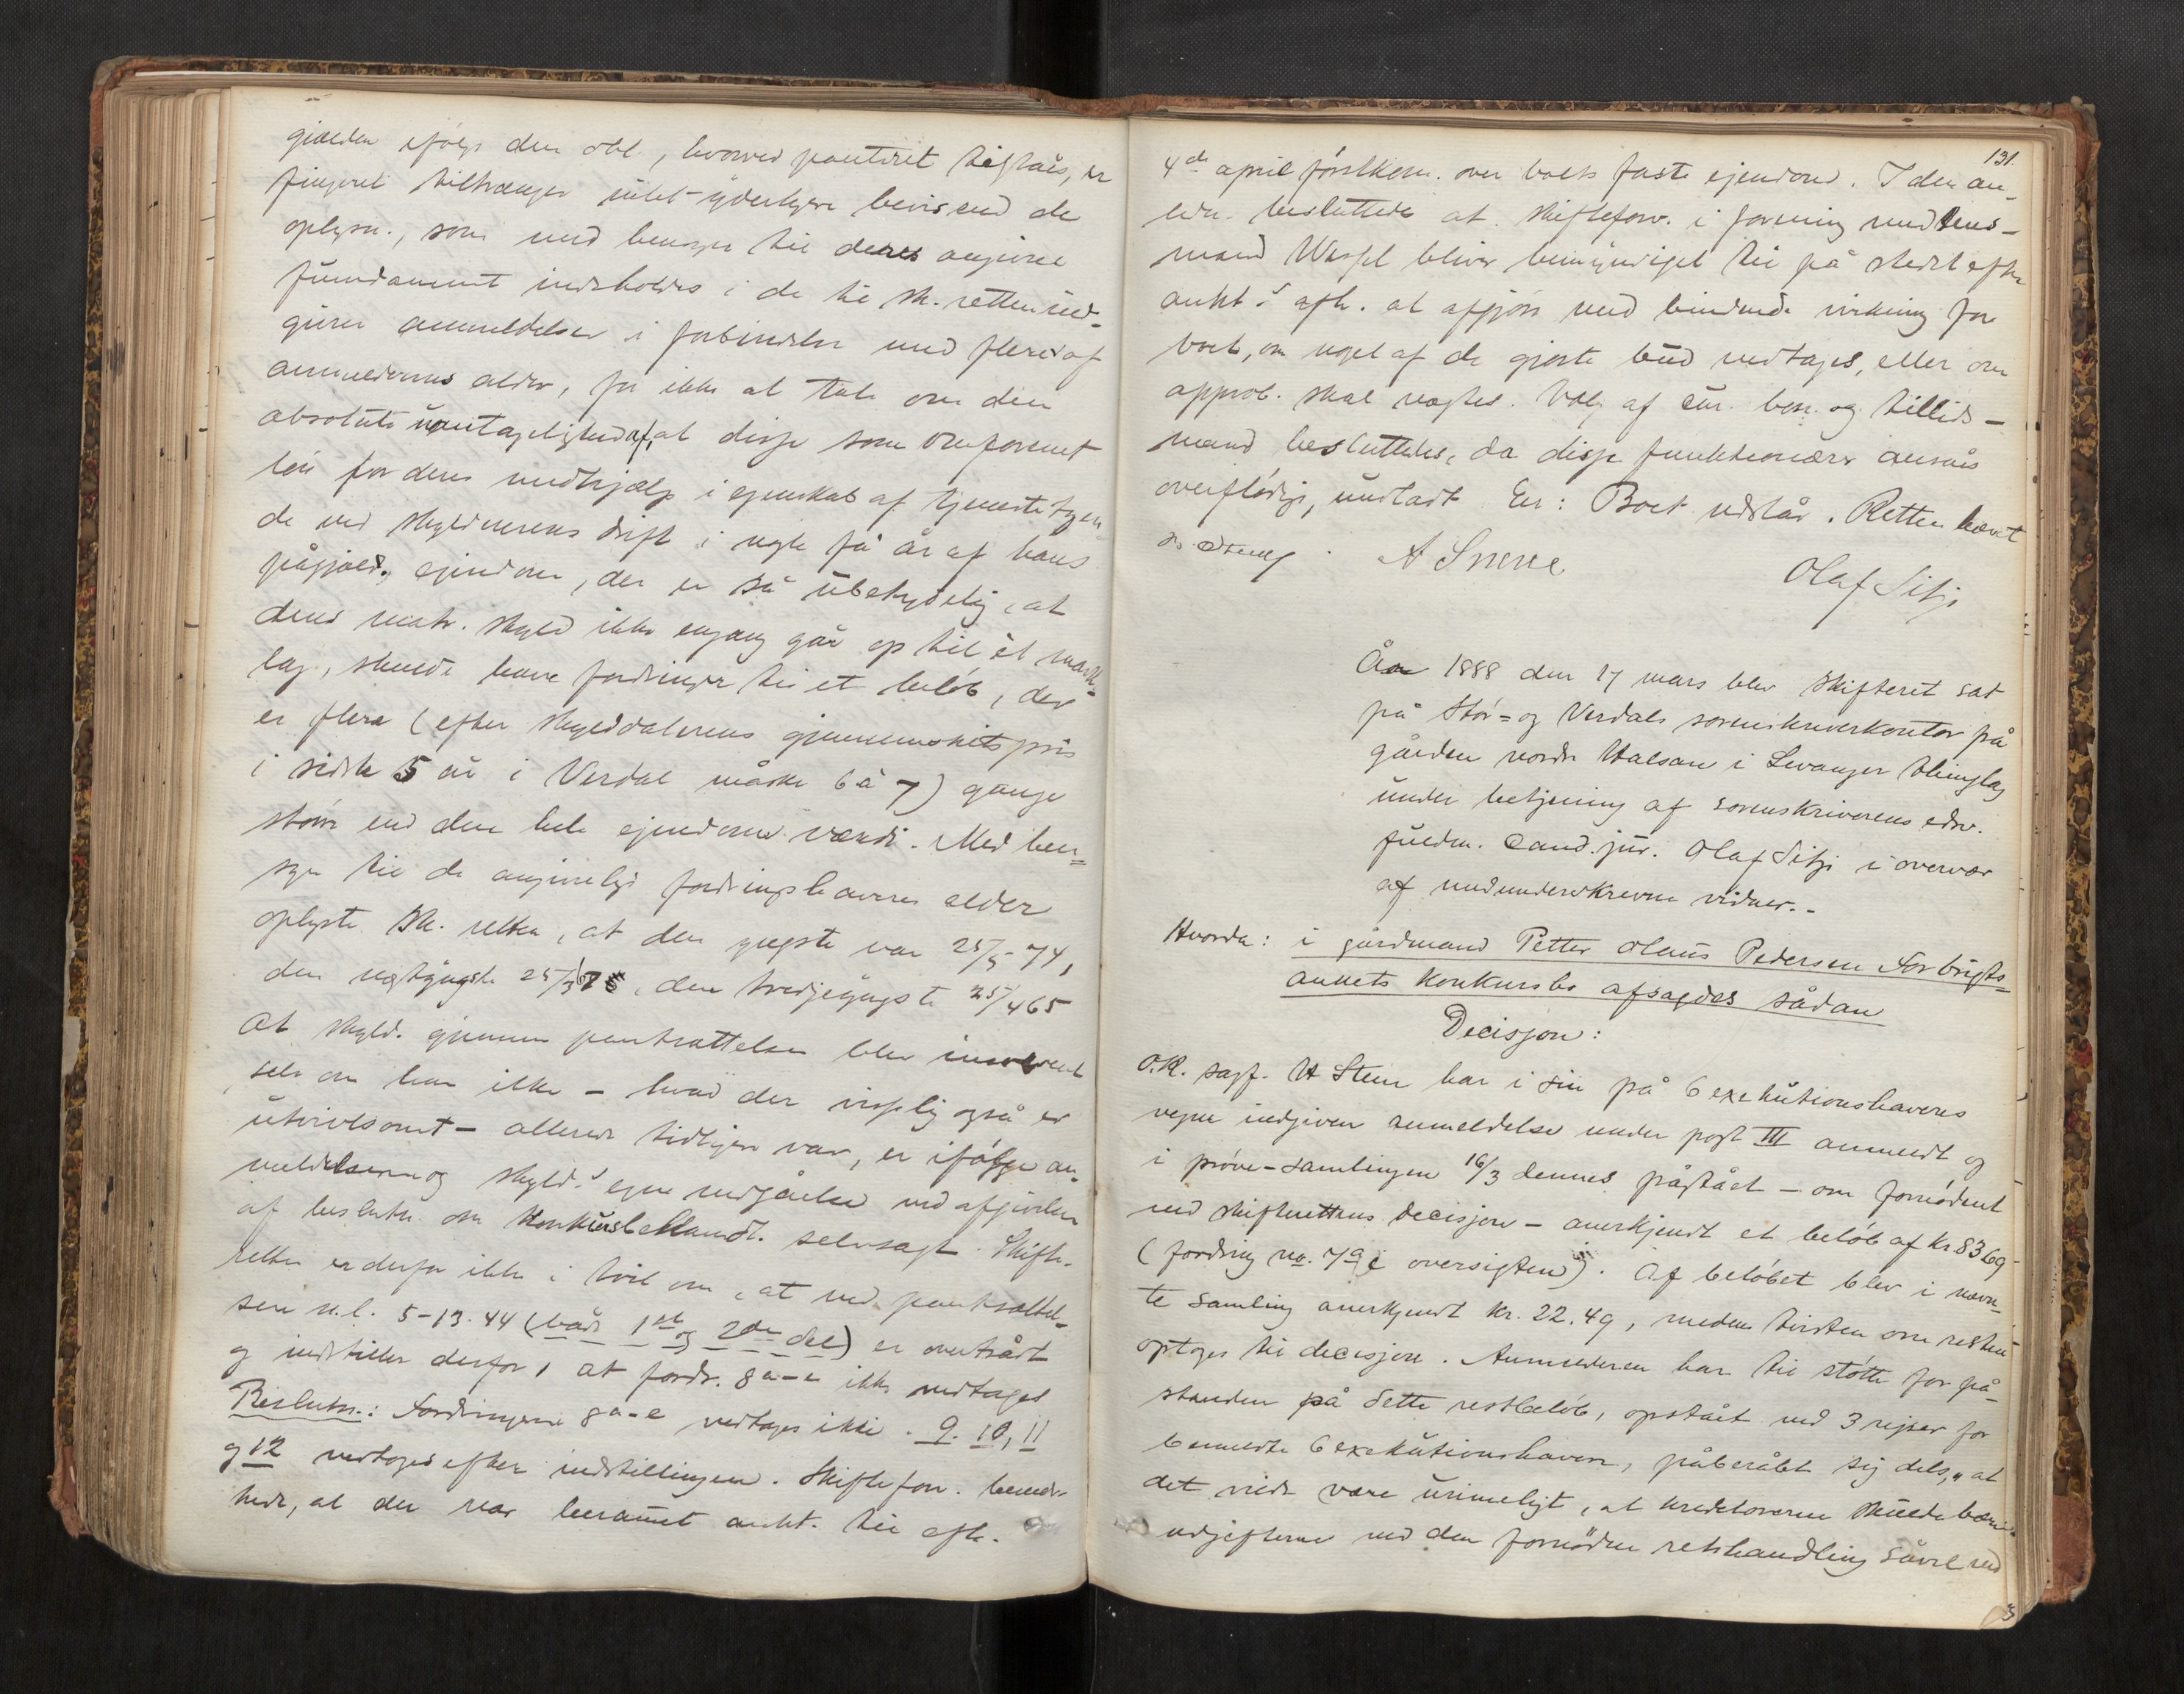 gjælden ifølge den obl., hvorved panteret tilstaaes, er
fingeret tiltrænger intet yderligere bevis end de
oplysn., som med hensyn til deres angivne
fundament indeholdes i de til sk.retten ind-
givne anmeldelser i forbindelse med flere af
anmeldernes alder, for ikke at tale om den
absolute uantagelighed af, at disse som
løn for deres medhjælp i egenskab af tjenestetyen
de ved skyldnerens drift i nogle få år af hans
pågjæld. ejendom, der er så ubetydelig, at
dens matr. skyld ikke engang går op til et mark-
lag, skulde have fordringer til et beløb, der
er flere (efter skylddalerens gjennemsnitspris
i sidste 5 år i Verdal måske 6 à 7) gange
større end den hele ejendoms værdi. Med hen=
syn til de angivelige fordringshaveres alder
oplyste sk. retten, at den yngste var 25/5-74,
den næstyngste 25/3 , den tredjeyngste 25/4 65
At skyld. gjennem pantsættelsen blev insolvent
selv om han ikke – hvad der visselig også er
utvivlsomt – allerede tidligere var, er ifølge an-
meldelserne og skyld.s egne vedgåelse ved afgivelsen
af beslutn. om konkursbehandl. selvsagt. Skifte-
retten er derfor ikke i tvil om, at ved pantsættel-
sen k.l. 5-13.44 (både 1ste og 2den del) er overtrådt
og indstiller derfor, at fordr. 8 a-e ikke vedtages
Beslutn.: Fordringerne 8 a-e vedtages ikke. 9. 10, 11
og 12 vedtoges efter indstillingen. Skifteforv. bemær-
kede, at der var berammet aukt. til afh.
131.
4de april førstkom. over boets faste ejendom. I den an-
ledn. besluttedes at skifteforv. i forening med lens-
mand Wessel bliver bemyndiget til på stedet efter
aukt.s afh. at afgjøre med bindende virkning for
boet, om noget af de gjorte bud vedtages, eller om
approb. skal nægtes. Valg af cur. bon. og tillids-
mænd besluttedes, da disse funktionærer ansåes
overflødige, undladt. Eer: Boet udstår. Retten hævet
A Snerve
Olaf Sitje
År 1888 den 17 mars blev skifteret sat
på Stør= og Verdals sorenskriverkontor på
gården nordre Halsan i Levanger thinglag
under betjening af sorenskriverens edsv.
fuldm. cand. jur. Olaf Sitje i overvær
af medunderskrevne vidner.-
Hvorda: i gårdmand Petter Olaus Pedersen Forbrigts=
aunets konkursbo afsagdes sådan
Decisjon:
O.R. sagf. H Stem har i sin på 6 exekutionshaveres
vegne indgiven anmeldelse under post III anmeldt og
i prøve-samlingen 16/3 dennes påstået – om fornødent
ved skifterettens decisjon – anerkjendt et beløb af kr 83.69
(fordring no. 7 a i oversigten). Af beløbet blev i nævn-
te samling anerkjendt kr. 22.49, medens tvisten om resten
optoges til decisjon. Anmelderen har til støtte for på-
standen på dette restbeløb, opstået ved 3 rejser for
bemeldte 6 exekutionshavere, påberåbt sig dels, „at
det vilde være urimeligt, at kreditorerne skulde bære
udgifterne ved den fornødne retshandling såvel ved